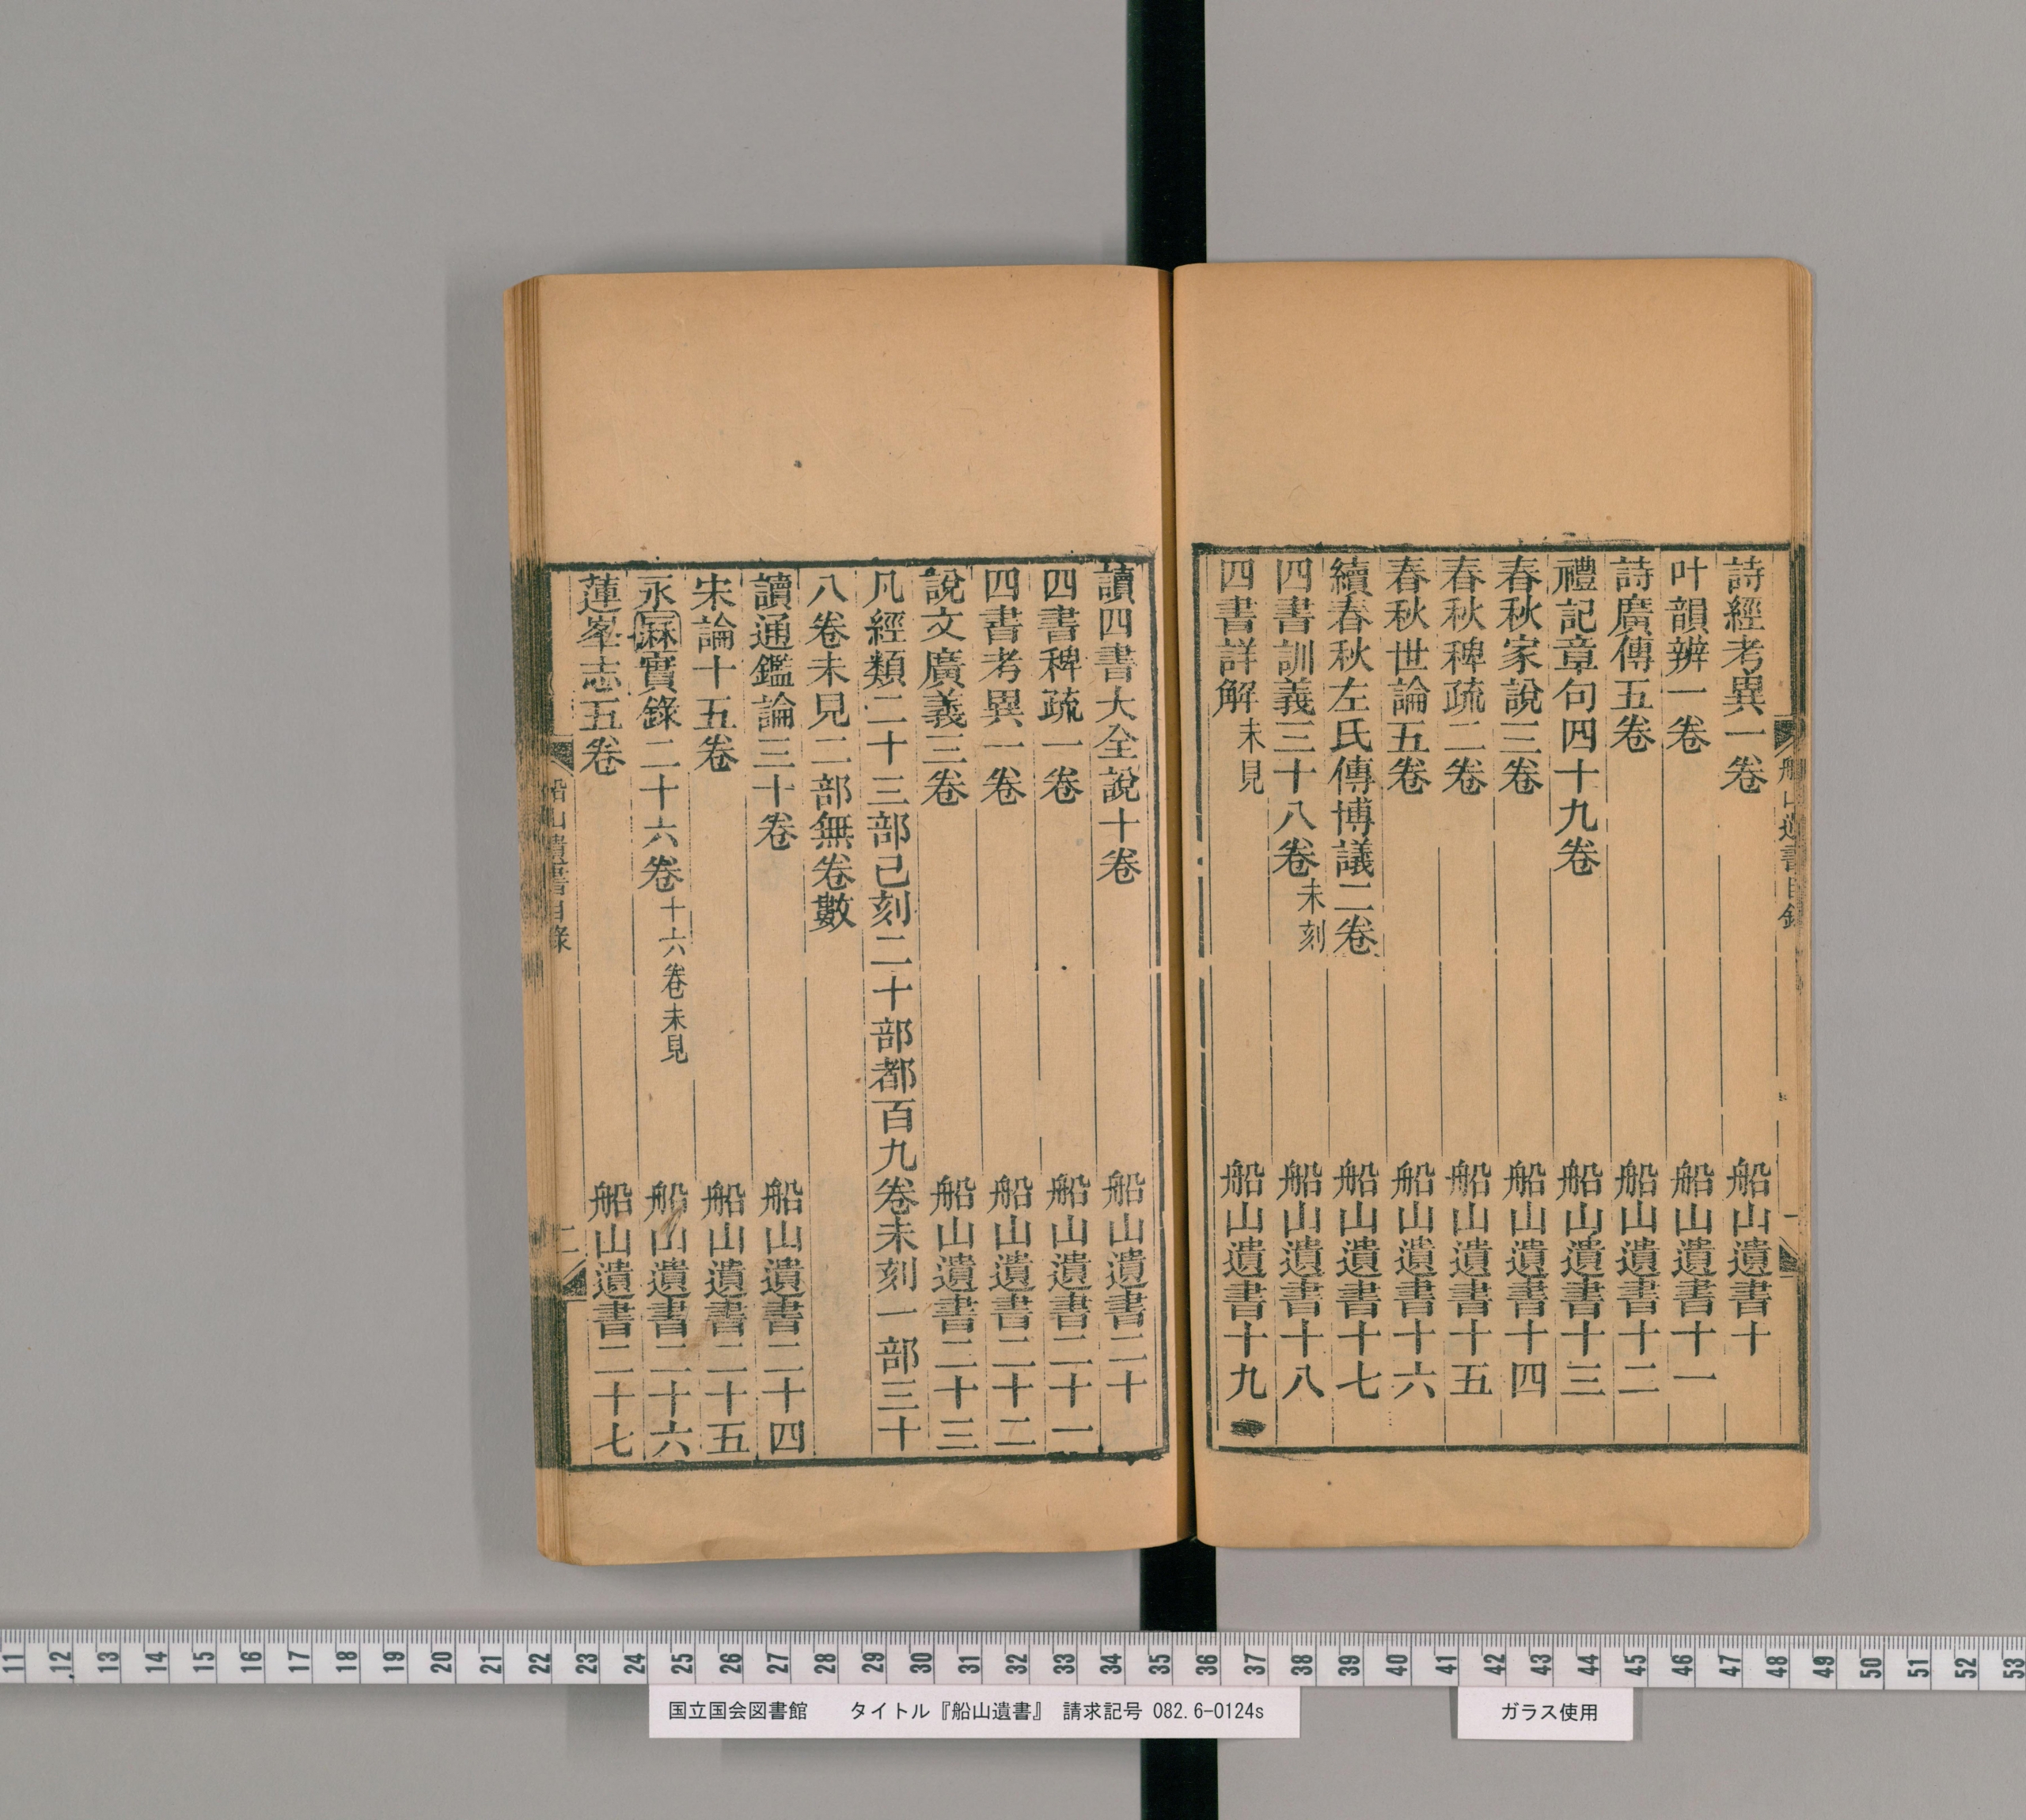 詩經考異一卷 船山遺書十
叶韻辨一卷 船山遺書十一
詩廣傳五卷 船山遺書十二
禮記章句四十九卷 船山遺書十三
春秋家說三卷 船山遺書十四
春秋稗疏二卷 船山遺書十五
春秋世論五卷 船山遺書十六
續春秋左氏傳博議二卷 船山遺書十七
四書訓義三十八卷未刻 船山遺書十八
四書詳解未見 船山遺書十九
讀四書大全說十卷 船山遺書二十
四書稗疏一卷 船山遺書二十一
四書考異一卷 船山遺書二十二
說文廣義三卷 船山遺書二十三
凡經類二十三部已刻二十部都百九卷未刻一部三十
八卷未見二部無卷數
讀通鑑論三十卷 船山遺書二十四
宋論十五卷 船山遺書二十五
永厤實錄二十六卷十六卷未見 船山遺書二十六
蓮峯志五卷 船山遺書二十七
船山遺書目錄 二
11 12 13 14 15 16 17 18 19 20 21 22 23 24 25 26 27 28 29 30 31 32 33 34 35 36 37 38 39 40 41 42 43 44 45 46 47 48 49 50 51 52 53
国立国会図書館 タイトル『船山遺書』 請求記号 082.6-0124s
ガラス使用